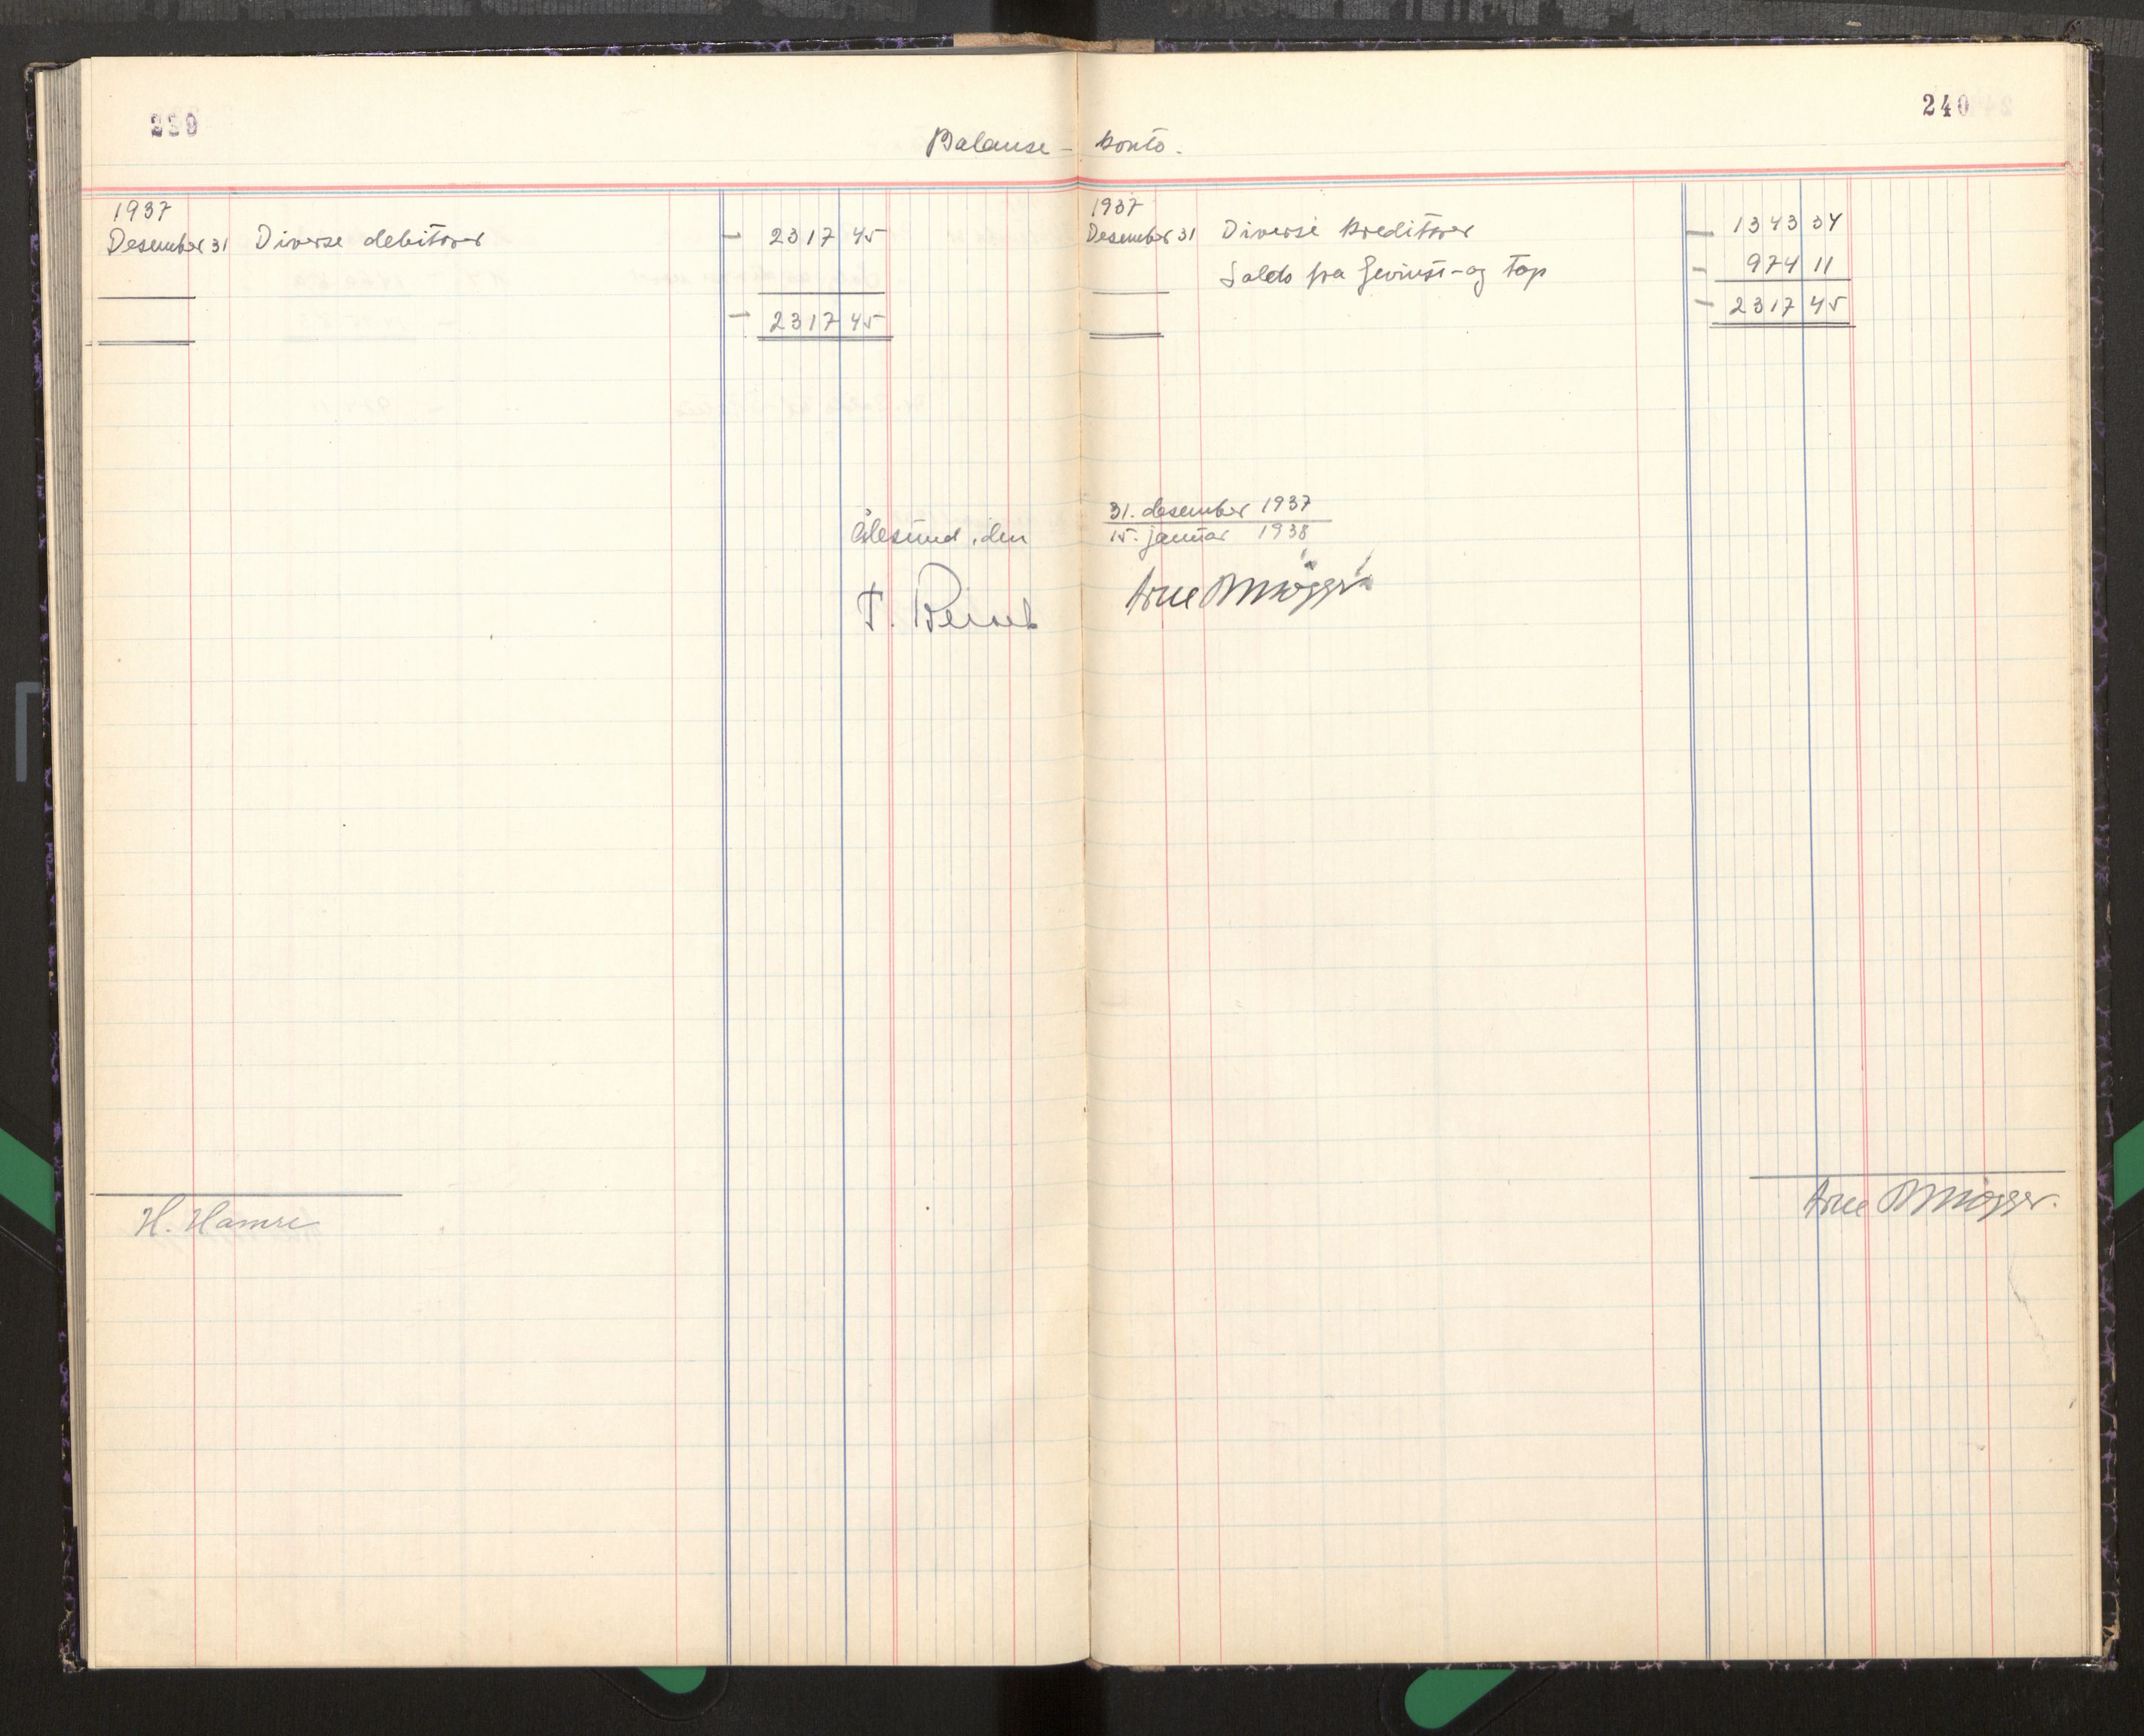 240
Balanse - konto.
1937
Desember 31 Diverse debitorer — 2317 45
— 2317 45
1937
Desember 31 Diverse kreditorer — 1343 34
Saldo fra Gevinst- og Tap — 974 11
— 2317 45
Ålesund, den 31. desember 1937
15. januar 1938
Arne
H. Hamre
Arne